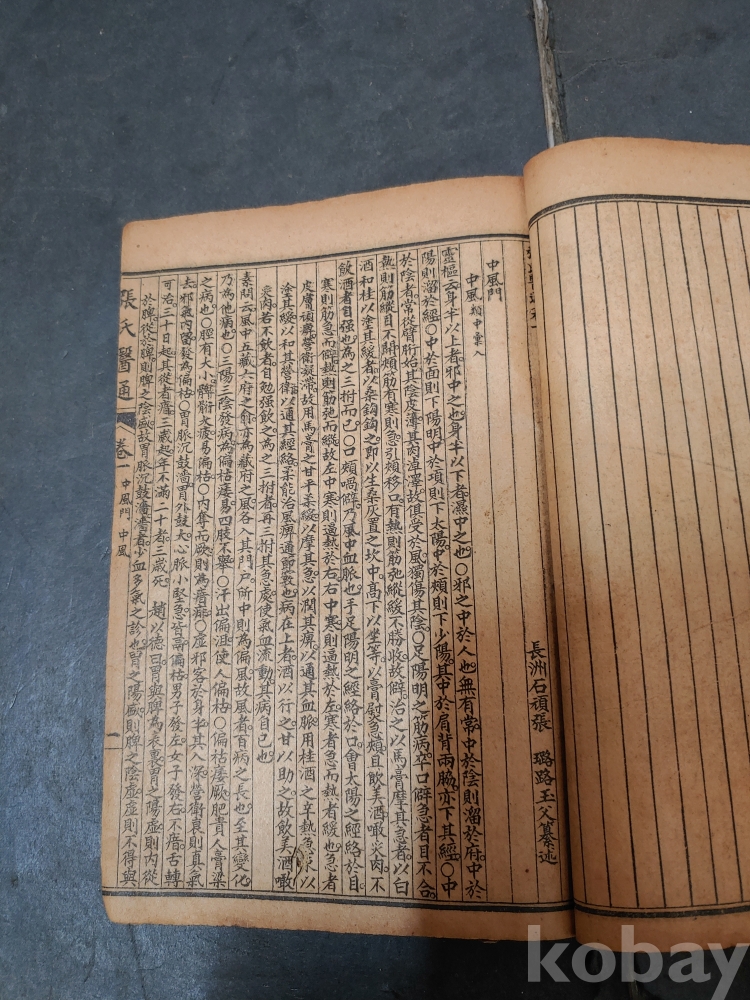 中風門
中風類中彙入
長洲石頑張 璐路玉父纂述
靈樞云身半以上者邪中之也身半以下者濕中之也○邪之中於人也無有常中於陰則溜於府中於
陽則溜於經○中於面則下陽明中於項則下太陽中於頰則下少陽其中於肩背兩脇亦下其經○中
於陰者常從臂胻始其陰皮薄其肉淖澤故俱受於風獨傷其陰○足陽明之筋病卒口僻急者目不合
熱則筋縱目不開頰筋有寒則急引頰移口有熱則筋弛縱緩不勝收故僻治之以馬膏摩其急者以白
酒和桂以塗其緩者以桑鉤鉤之即以生桑灰置之坎中高下以坐等以膏熨急頰且飲美酒噉炙肉不
飲酒者自强也為之三拊而已○口頰喎僻乃風中血脈也手足陽明之經絡於口會太陽之經絡於目
寒則筋急而僻熱則筋弛而縱故左中寒則逼熱於右右中寒則逼熱於左寒者急而熱者緩也急者
皮膚頑痺營衛凝滯故用馬膏之甘平柔緩以摩其急以潤其痺以通其血脈用桂酒之辛熱急束以
塗其緩以和其營衛以通其經絡柔能治風痺通節竅也病在上者酒以行之甘以助之故飲美酒噉
炙肉若不飲者自勉强飲之為之三拊者再三拊其急處使氣血流動其病自已也
素問云風中五藏六府之俞亦為藏府之風各入其門戶所中則為偏風故風者百病之長也至其變化
乃為他病也○三陽三陰發病為偏枯痿易四肢不舉○汗出偏沮使人偏枯○偏枯痿厥肥貴人膏粱
之病也○脛有大小髀胻大疲易偏枯○內奪而厥則為瘖痱○虛邪客於身半其入深營衛衰則真氣
去邪氣內留發為偏枯○胃脈沉鼓濇胃外鼓大心脈小堅急皆鬲偏枯男子發左女子發右不瘖舌轉
可治三十日起其從者瘖三歲起年不滿二十者三歲死 趙以德曰胃與脾為表裏胃之陽虛則內從
於脾從於脾則脾之陰盛故胃脈沉鼓濇濇者少血多氣之診也胃之陽盛則脾之陰虛虛則不得與
張氏醫通 卷一 中風門 中風 一
kobay